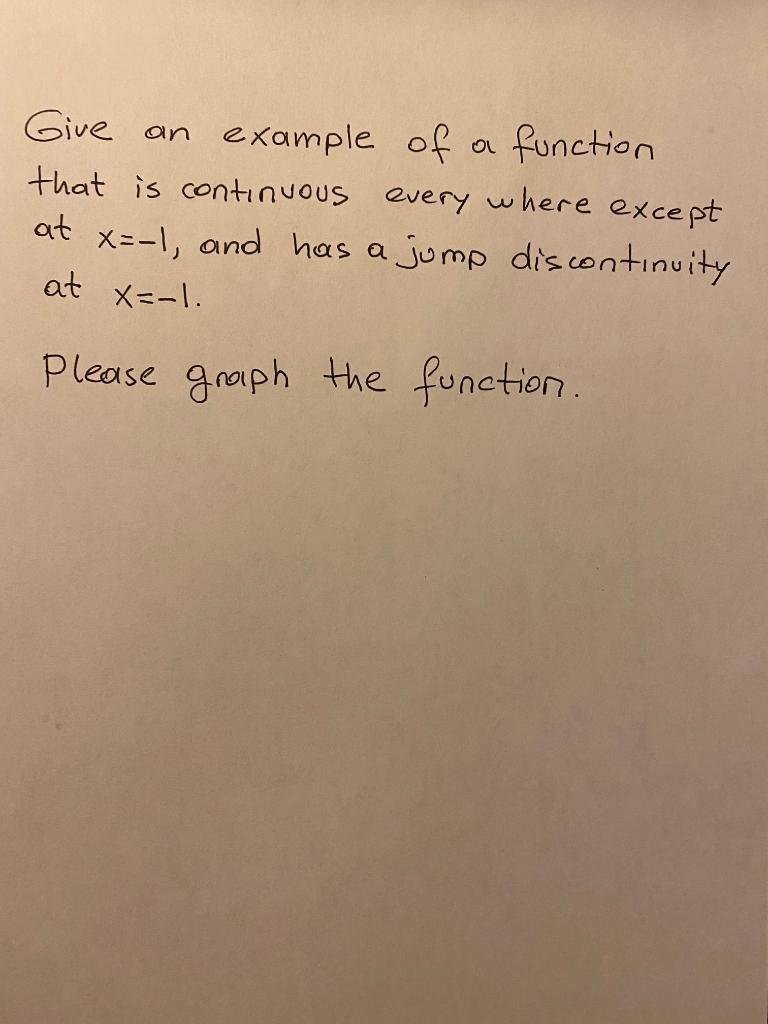 Give an example of a function
that is continuous every where except
at x=-1, and has a jump discontinuity
at x=-1.
Please graph the function.